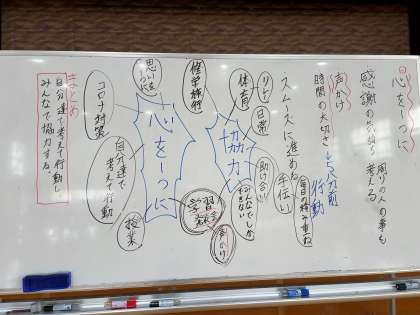 心を一つに
周りの人の事も
考える
感謝の気持ち
声かけ
時間の大切さ
5分前
行動
スムーズに進める
手伝い
毎日の積み重ね
リレー
日常
助け合い
体育
協力
みんなでしか
できない
声かけ
修学旅行
学習
発表会
心を一つに
思いやり
コロナ対策
自分達で
考えて行動
授業
まとめ
自分達で考えて行動し、
みんなで協力する。